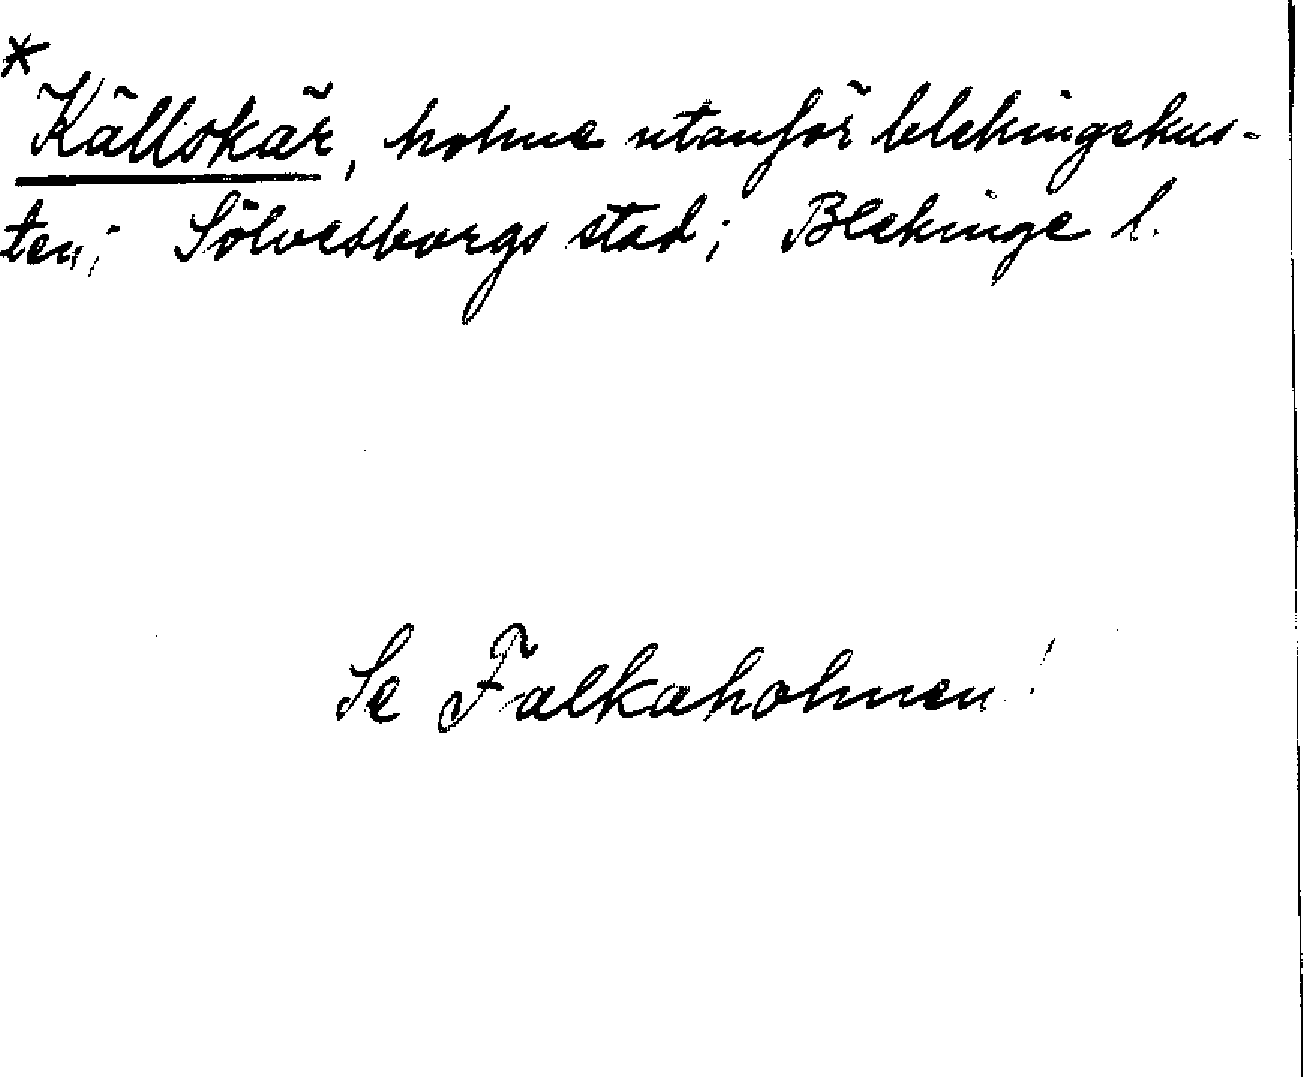 *
Källskär, holme utanför blekingekus-
ten; Sölvesborgs stad; Blekinge l.
Se Falkaholmen!